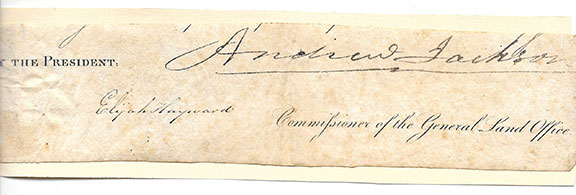 Andrew Jackson
THE PRESIDENT:
Elijah Hayward
Commissioner of the General Land Office